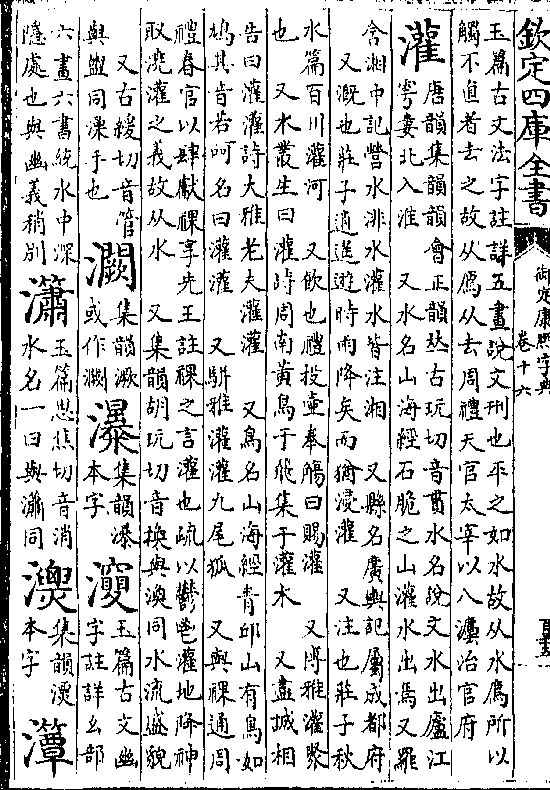 欽定四庫全書
御定康熙字典
卷十六
玉篇古文法字註詳五畫說文刑也平之如水故从水廌所以
觸不直者去之故从廌从去周禮天官太宰以八灋治官府
灌
唐韻集韻韻會正韻𠀤古玩切音貫水名說文水出廬江
雩婁北入淮　又水名山海經石脆之山灌水出焉又羅
含湘中記營水洮水灌水皆注湘　又縣名廣輿記屬成都府
又溉也莊子逍遙遊時雨降矣而猶浸灌　又注也莊子秋
水篇百川灌河　又飲也禮投壺奉觴曰賜灌　又博雅灌聚
也　又木叢生曰灌詩周南黃鳥于飛集于灌木　又盡誠相
告曰灌灌詩大雅老夫灌灌　又鳥名山海經青邱山有鳥如
鳩其音若呵名曰灌灌　又駢雅灌灌九尾狐　又與祼通周
禮春官以肆獻祼享先王註祼之言灌也疏以鬱鬯灌地降神
取澆灌之義故从水　又集韻胡玩切音換與渙同水流盛貌
又古緩切音管
與盥同澡手也
集韻
或作
集韻瀑
本字
玉篇古文幽
字註詳幺部
六畫六書統水中深
隱處也與幽義稍別
瀟
玉篇思焦切音消
水名一曰與潚同
集韻澳
本字